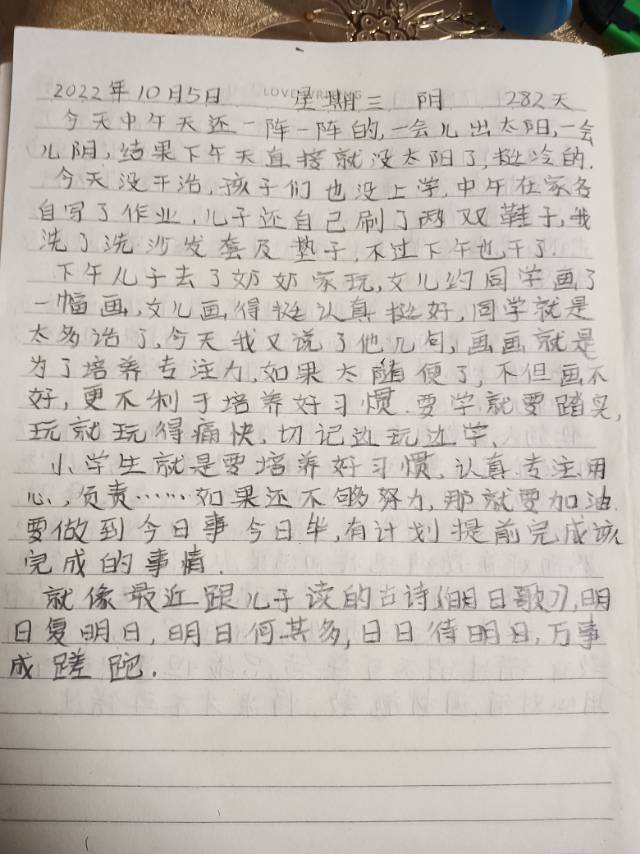 LOVE WRITING
2022年10月5日 星期三 阴 282天
今天中午天还一阵一阵的,一会儿出太阳,一会
儿阴,结果下午天直接就没太阳了,挺冷的.
今天没干活,孩子们也没上学,中午在家各
自写了作业,儿子还自己刷了两双鞋子,我
洗了洗沙发套及垫子,不过下午也干了.
下午儿子去了奶奶家玩,女儿约同学画了
一幅画,女儿画得挺认真挺好,同学就是
太多话了,今天我又说了他几句,画画就是
为了培养专注力,如果太随便了,不但画不
好,更不利于培养好习惯.要学就要踏实,
玩就玩得痛快,切记边玩边学、
小学生就是要培养好习惯,认真、专注、用
心、负责……如果还不够努力,那就要加油.
要做到今日事今日毕,有计划提前完成该
完成的事情.
就像最近跟儿子读的古诗《明日歌》,明
日复明日,明日何其多,日日待明日,万事
成蹉跑.